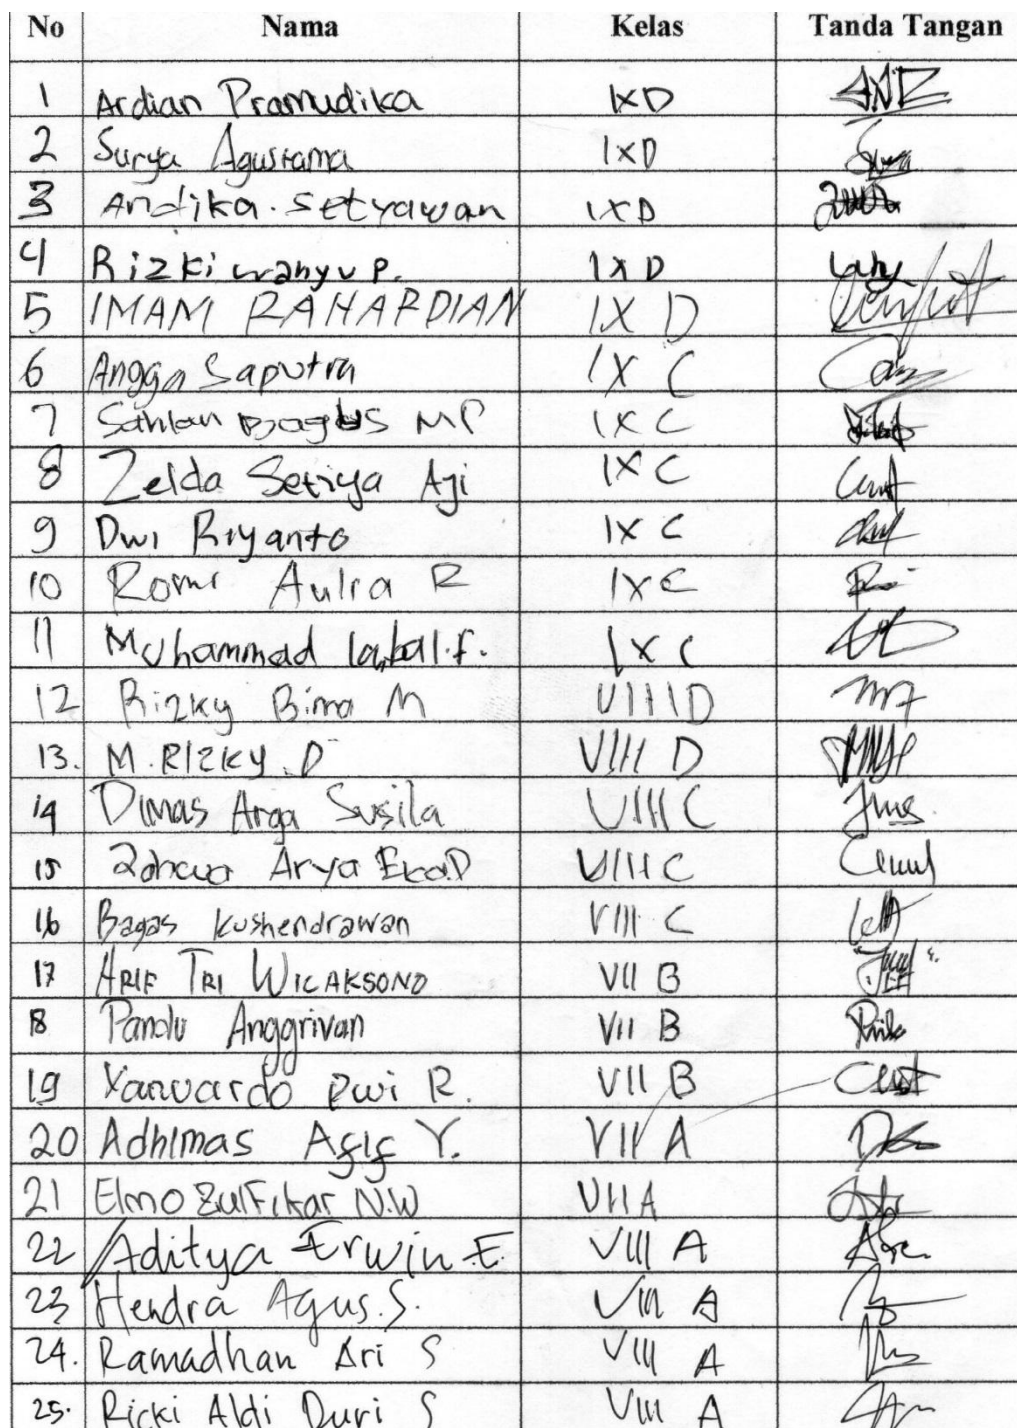 No Nama Kelas Tanda Tangan
1 Ardian Pramudika IXD
2 Surya Agustama IXD
3 Andika. Setyawan IXD
4 Rizki wahyu P. IXD
5 IMAM RAHARDIAN IX D
6 Angga Saputra IX C
7 Sahlan Bagus MP IX C
8 Zelda Setiya Aji IX C
9 Dwi Riyanto IX C
10 Romi Aulia R IX C
11 Muhammad Iqbal.f. IX C
12 Rizky Bima M VIII D
13. M. RIZKY. D VIII D
14 Dimas Arga Susila VIII C
15 Arya VIII C
16 Bagas Kushendrawan VIII C
17 ARIF TRI WICAKSONO VII B
18 Pandu Anggrivan VII B
19 Yanuardo Dwi R. VII B
20 Adhimas Afif Y. VII A
21 Elmo Zulfikar N.W VII A
22 Aditya Erwin.E. VIII A
23 Hendra Agus.S. VIII A
24. Ramadhan Ari S VIII A
25. Ricki Aldi Duri S VIII A